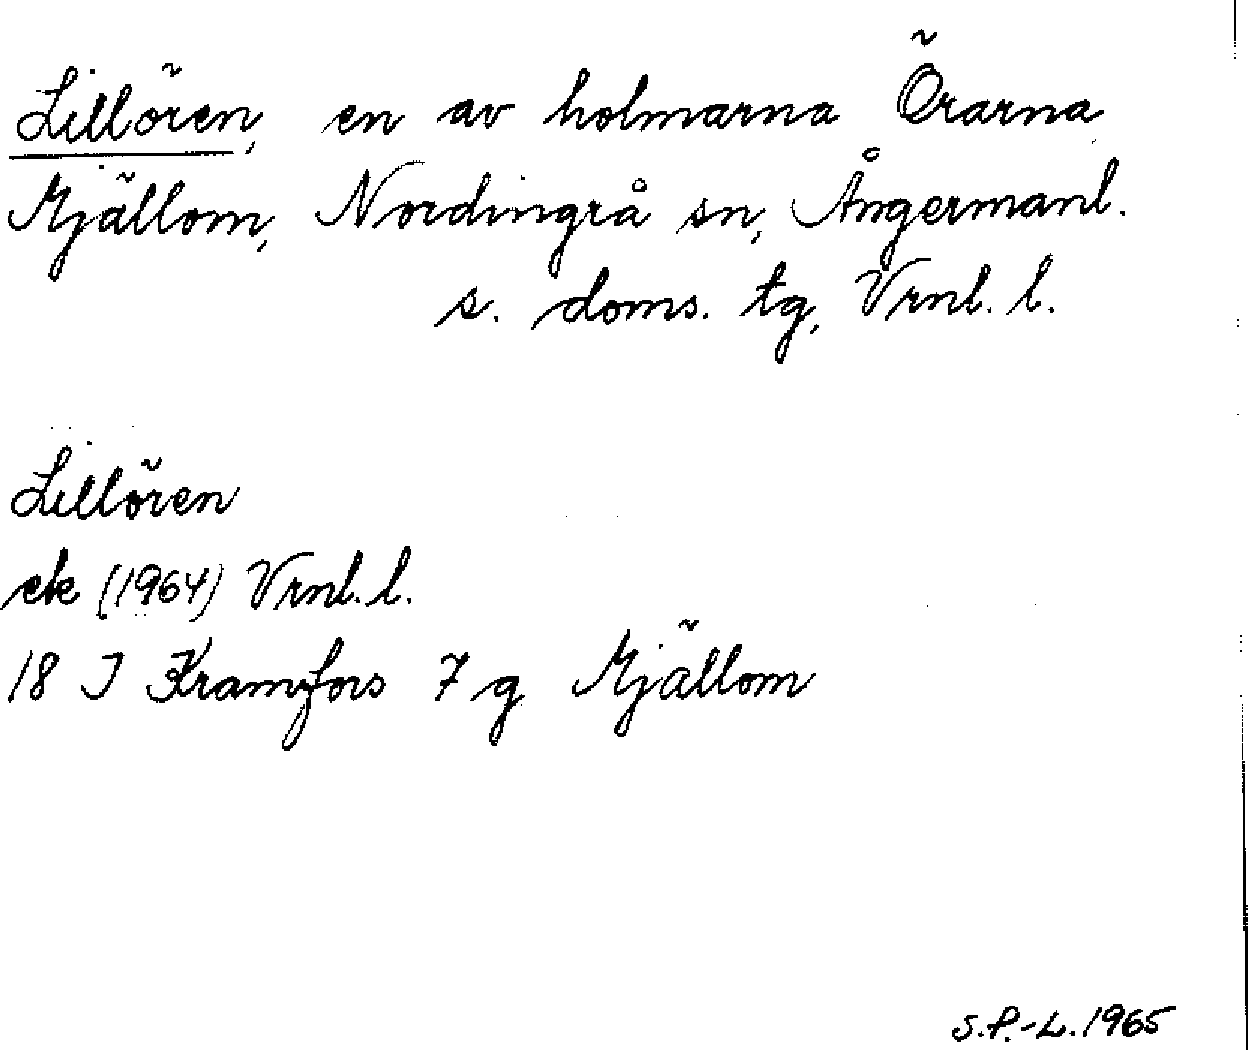 Lillören, en av holmarna Örarna
Mjällom, Nordingrå sn, Ångermanl.
s. doms. tg, Vrnl. l.
Lillören
ek (1964) Vrnl. l.
18 J Kramfors 7 g Mjällom
S.P.-L. 1965